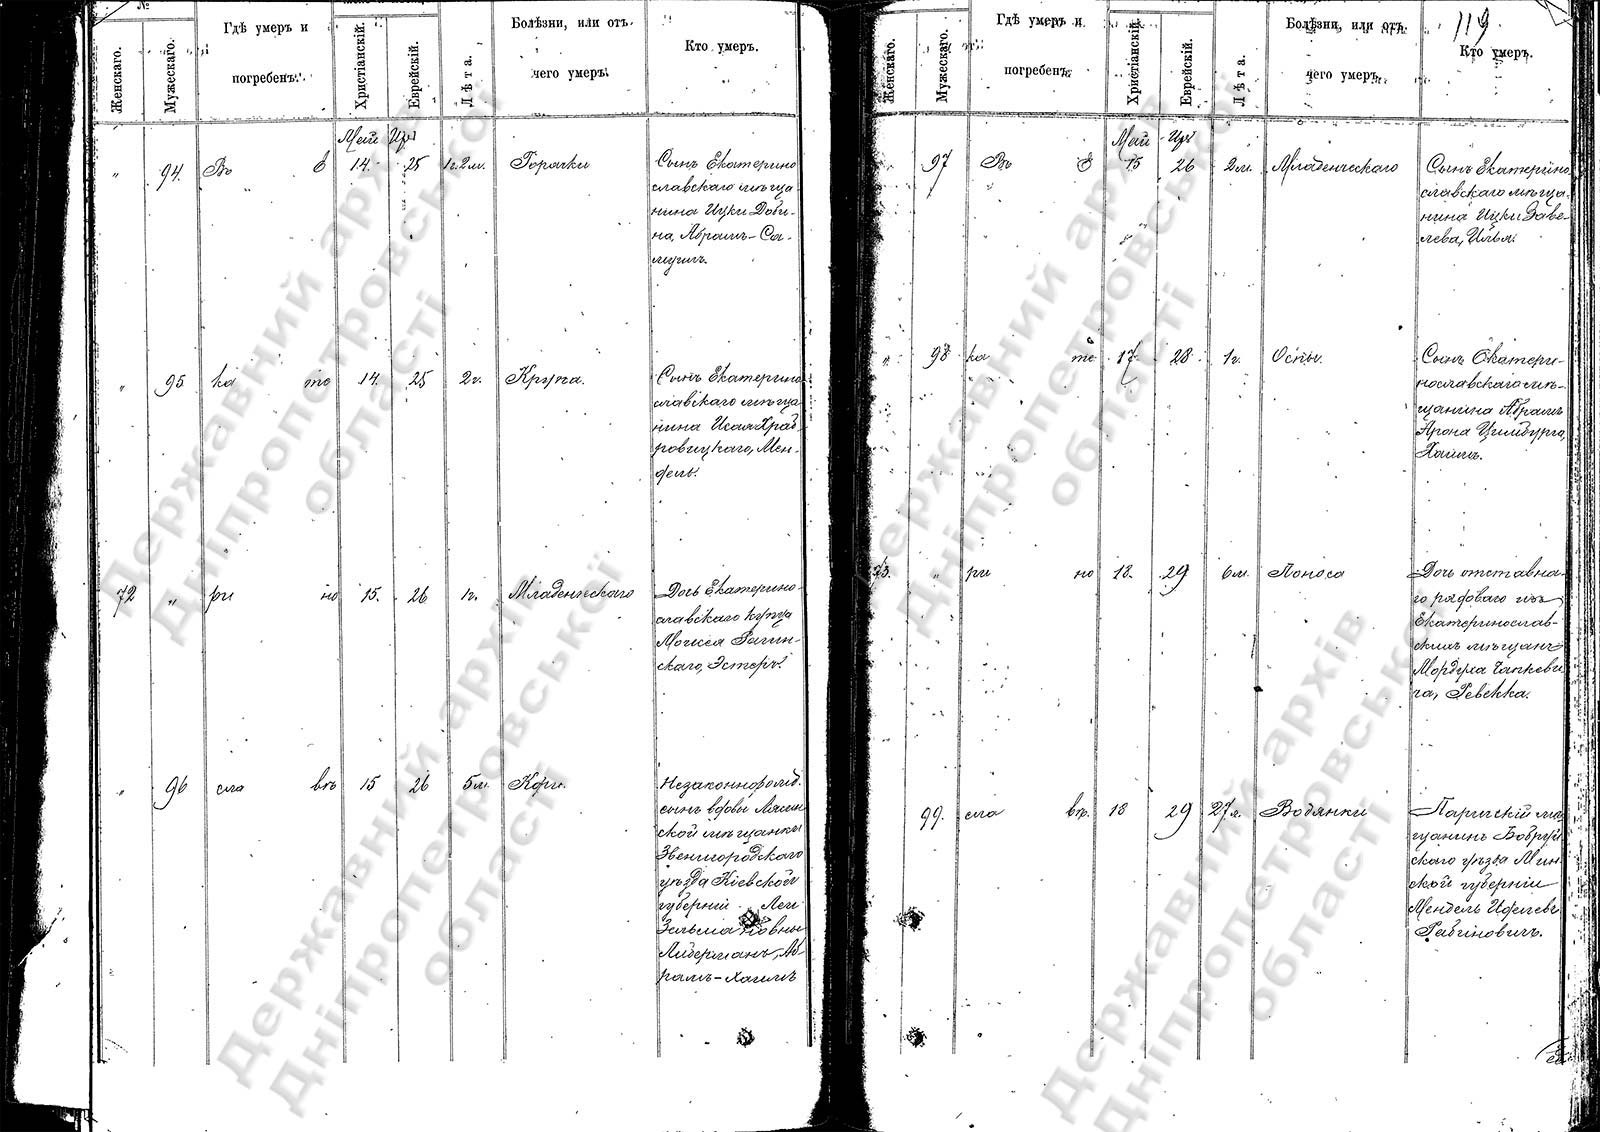 №
Женскаго.
Мужескаго.
Гдѣ умеръ и
погребенъ.
Христіанскій.
Еврейскій.
Лѣта.
Болѣзни, или отъ
чего умеръ.
Кто умеръ.
Май Іяръ
" 94. Въ Е 14. 25 1г.2м. Горячки
Сынъ Екатерино
славскаго мѣща
нина Ицки Доби-
на, Абрамъ-Са-
муилъ.
" 95 ка те 14. 25 2г. Крупа.
Сынъ Екатерино
славскаго мѣща
нина Исая Храб-
ровицкаго, Мен-
дель.
72 " ри но 15. 26 1г. Младенческаго
Дочь Екатерино-
славскаго купца
Моисея Рагин-
скаго, Эстеръ.
" 96 сла въ 15 26 5м. Кори.
Незаконнорожд.
сынъ вдовы
ской мѣщанки
Звенигородскаго
уѣзда Кіевской
губерніи Леи
Зельмановны
Либерманъ, Аб-
рамъ-Хаимъ
119
Женскаго.
Мужескаго.
Гдѣ умеръ и
погребенъ.
Христіанскій.
Еврейскій.
Лѣта.
Болѣзни, или отъ
чего умеръ.
Кто умеръ.
Май Іяръ
97 Въ Е 15 26 2м. Младенческаго
Сынъ Екатерино
славскаго мѣща-
нина Ицки Заве-
лева, Илья.
" 98 ка те 17. 28 1г. Оспы.
Сынъ Екатери-
нославскаго мѣ-
щанина Абрамъ
Арона Цимбурга,
Хаимъ.
73. " ри но 18. 29 6м. Поноса
Дочь отставна-
го рядоваго изъ
Екатеринослав-
скихъ мѣщанъ
Мордуха Чапкеви
ча, Ревекка.
99. сла въ. 18 29 27л. Водянки
Паричскій мѣ
щанинъ Бобруй
скаго уѣзда Мин
ской губерніи
Мендель
Рабиновичъ.
Державний архів
Дніпропетровської
області
Державний архів
Дніпропетровської
області
Державний архів
Дніпропетровської
області
Державний архів
Дніпропетровської
області